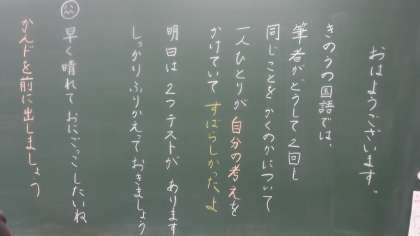 おはようございます。
きのうの国語では、
筆者が、どうして2回も
同じことをかくのかについて
一人ひとりが 自分の考えを
かけていて すばらしかったよ
明日は 2つ テストが あります
しっかりふりかえっておきましょう
早く晴れて おにごっこしたいね
かんドを前に出しましょう